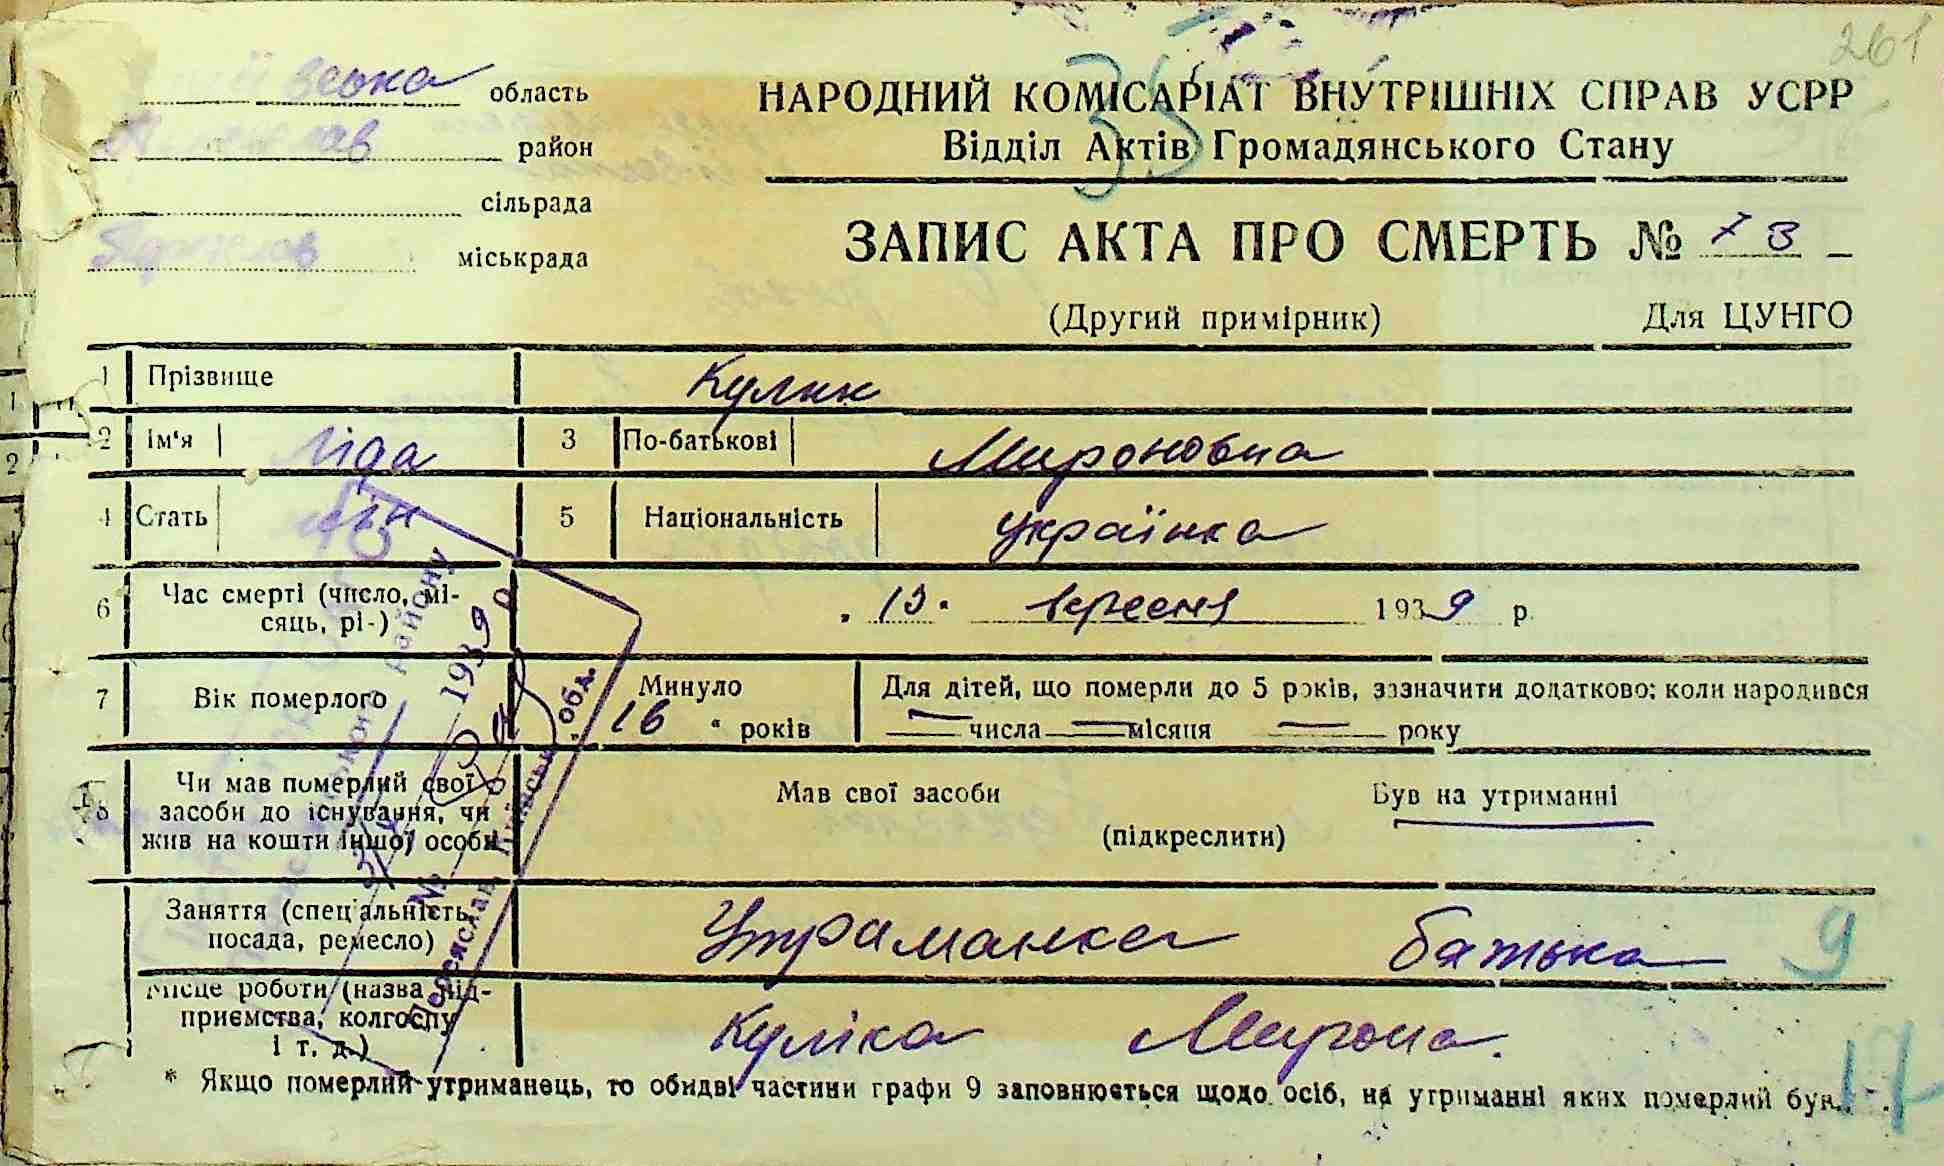 261
35
вська область
район
сільрада
міськрада
НАРОДНИЙ КОМІСАРІАТ ВНУТРІШНІХ СПРАВ УСРР
Відділ Актів Громадянського Стану
ЗАПИС АКТА ПРО СМЕРТЬ №
(Другий примірник) Для ЦУНГО
1 Прізвище Кулик
2 Ім'я Ліда 3 По-батькові Мироновна
4 Стать жін 5 Національність українка
6 Час смерті (число, мі-
сяць, рі-) 13. вересня 1939 р.
7 Вік померлого Минуло 16 років Для дітей, що померли до 5 років, зазначити додатково: коли народився
числа місяця року
8 Чи мав померлий свої
засоби до існування, чи
жив на кошти іншої особи
Мав свої засоби Був на утриманні
(підкреслити)
Заняття (спеціальність,
посада, ремесло) Утраманка батька 9
Місце роботи (назва під-
приємства, колгоспу
і т. д.) Куліка Мирона.
* Якщо померлий утриманець, то обидві частини графи 9 заповнюється щодо осіб, на утриманні яких померлий був.
17
району
1939 р
обл.
№